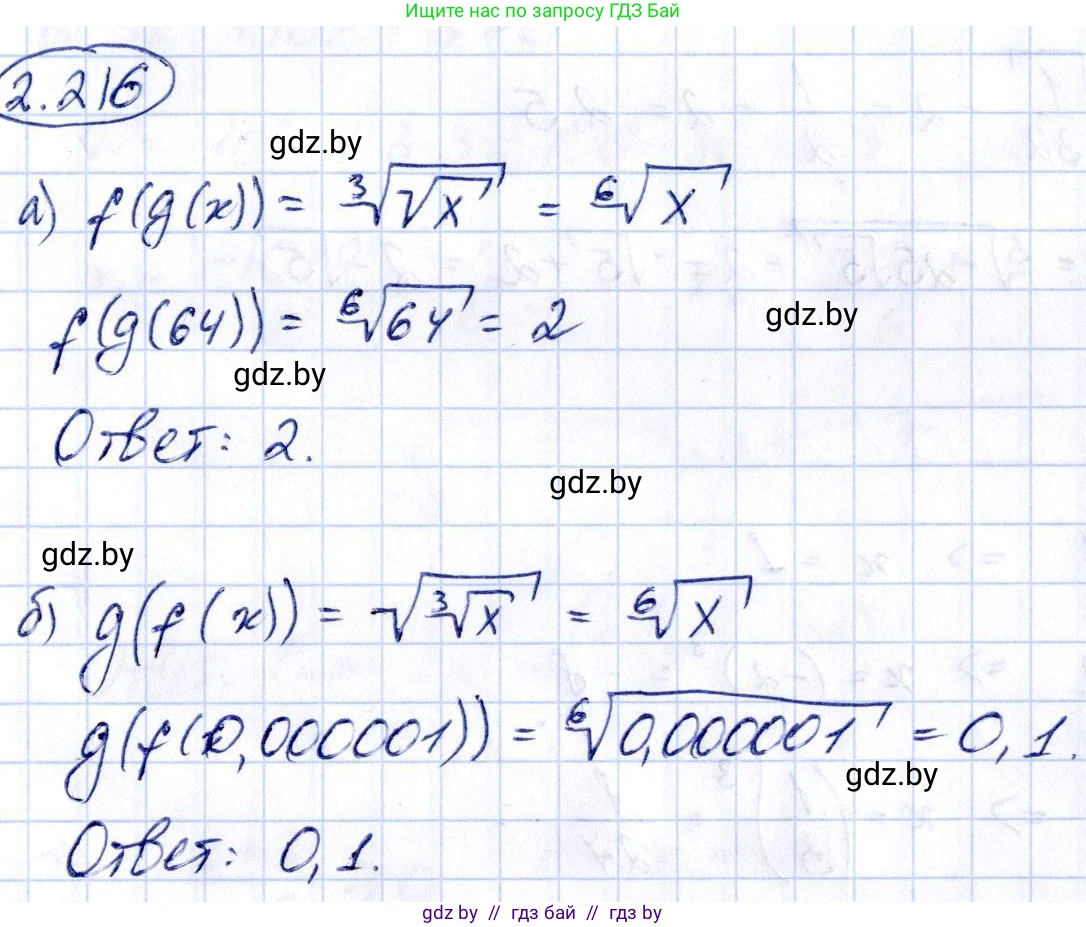 Ищите нас по запросу ГДЗ Бай
2.216
gdz.by
а) f(g(x)) = ∛(√x) = ⁶√x
f(g(64)) = ⁶√64 = 2
gdz.by
gdz.by
Ответ: 2.
gdz.by
gdz.by
б) g(f(x)) = √(∛x) = ⁶√x
g(f(0,000001)) = ⁶√0,000001 = 0,1.
gdz.by
Ответ: 0,1.
gdz by // гдз бай // гдз by